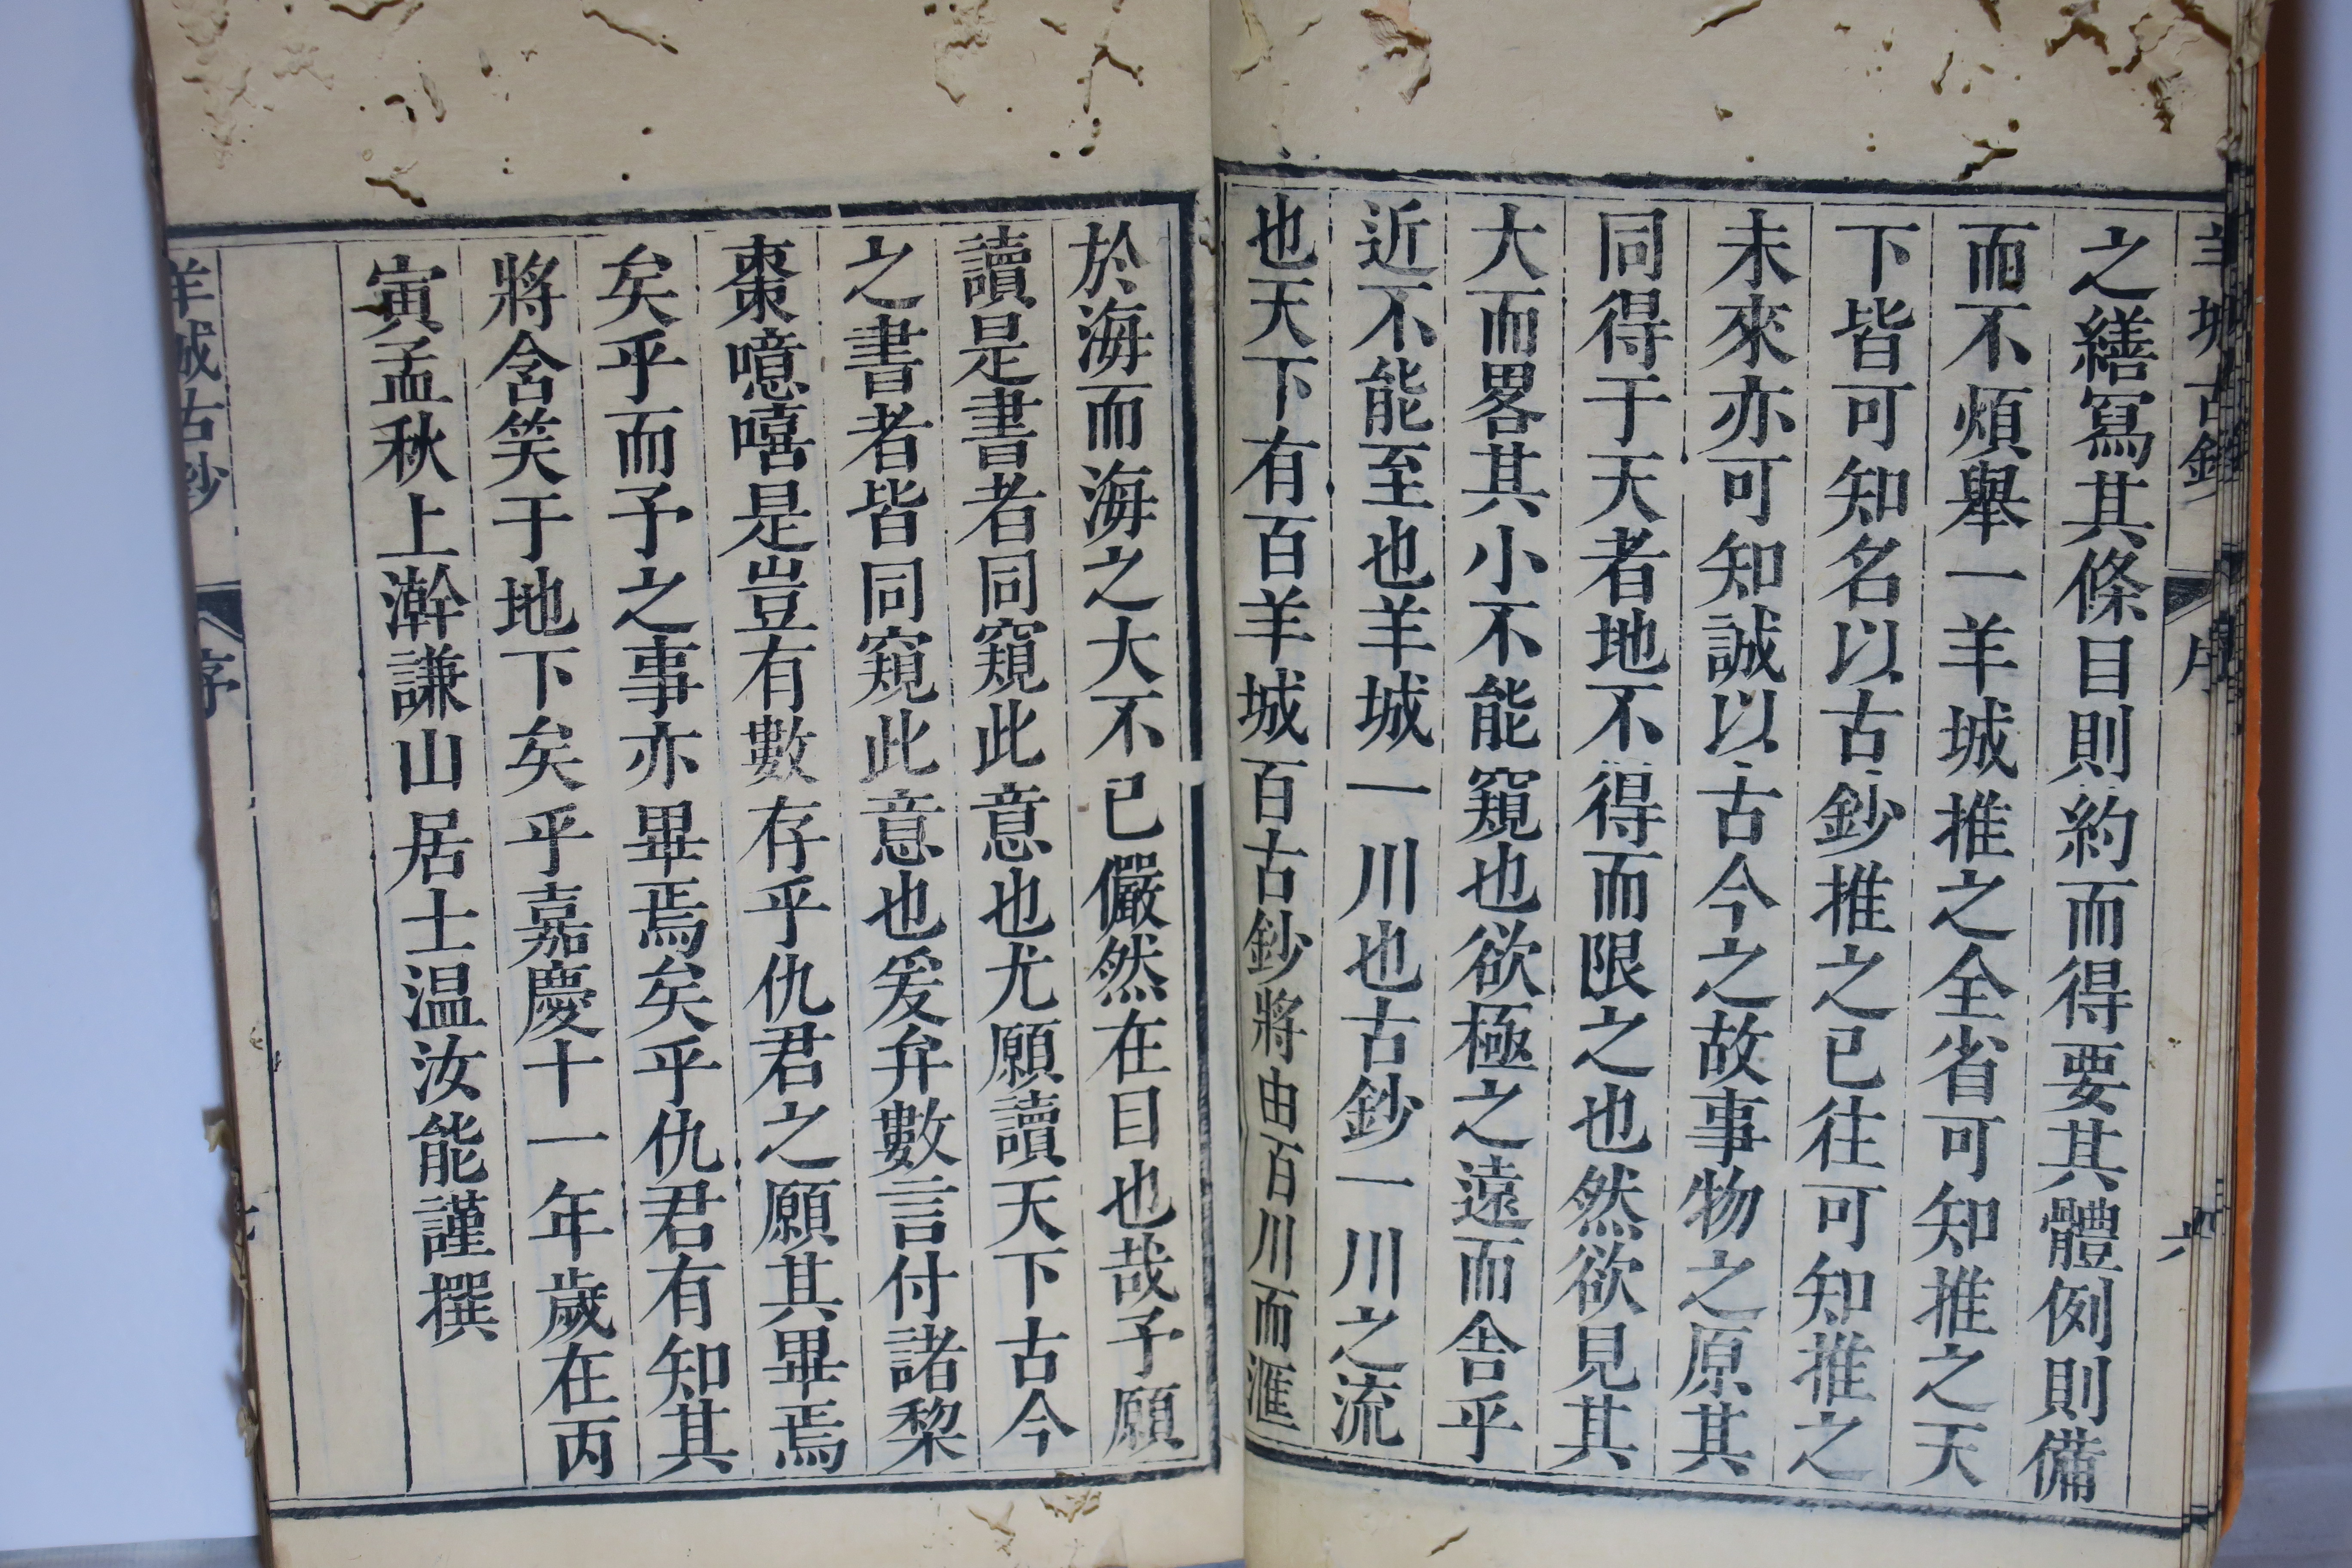 羊城古鈔
序
六
之繕寫其條目則約而得要其體例則備
而不煩舉一羊城推之全省可知推之天
下皆可知名以古鈔推之已往可知推之
未來亦可知誠以古今之故事物之原其
同得于天者地不得而限之也然欲見其
大而畧其小不能窺也欲極之遠而舍乎
近不能至也羊城一川也古鈔一川之流
也天下有百羊城百古鈔將由百川而滙
於海而海之大不已儼然在目也哉予願
讀是書者同窺此意也尤願讀天下古今
之書者皆同窺此意也爰弁數言付諸棃
棗噫嘻是豈有數存乎仇君之願其畢焉
矣乎而予之事亦畢焉矣乎仇君有知其
將含笑于地下矣乎嘉慶十一年歲在丙
寅孟秋上澣謙山居士温汝能謹撰
羊城古鈔
序